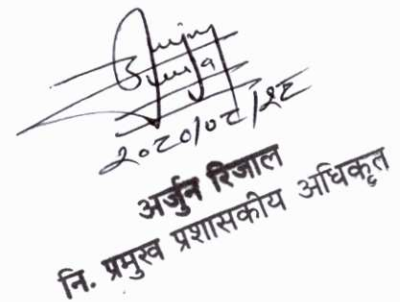 २०८०/०८/२८
अर्जुन रिजाल
नि. प्रमुख प्रशासकीय अधिकृत